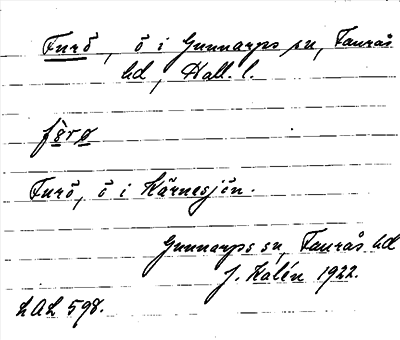 Furö, ö i Gunnarps sn, Faurås
hd, Hall. l.
Furö, ö i Kärnesjön.
Gunnarps sn, Faurås hd
J. Kalén 1922.
LAL 598.